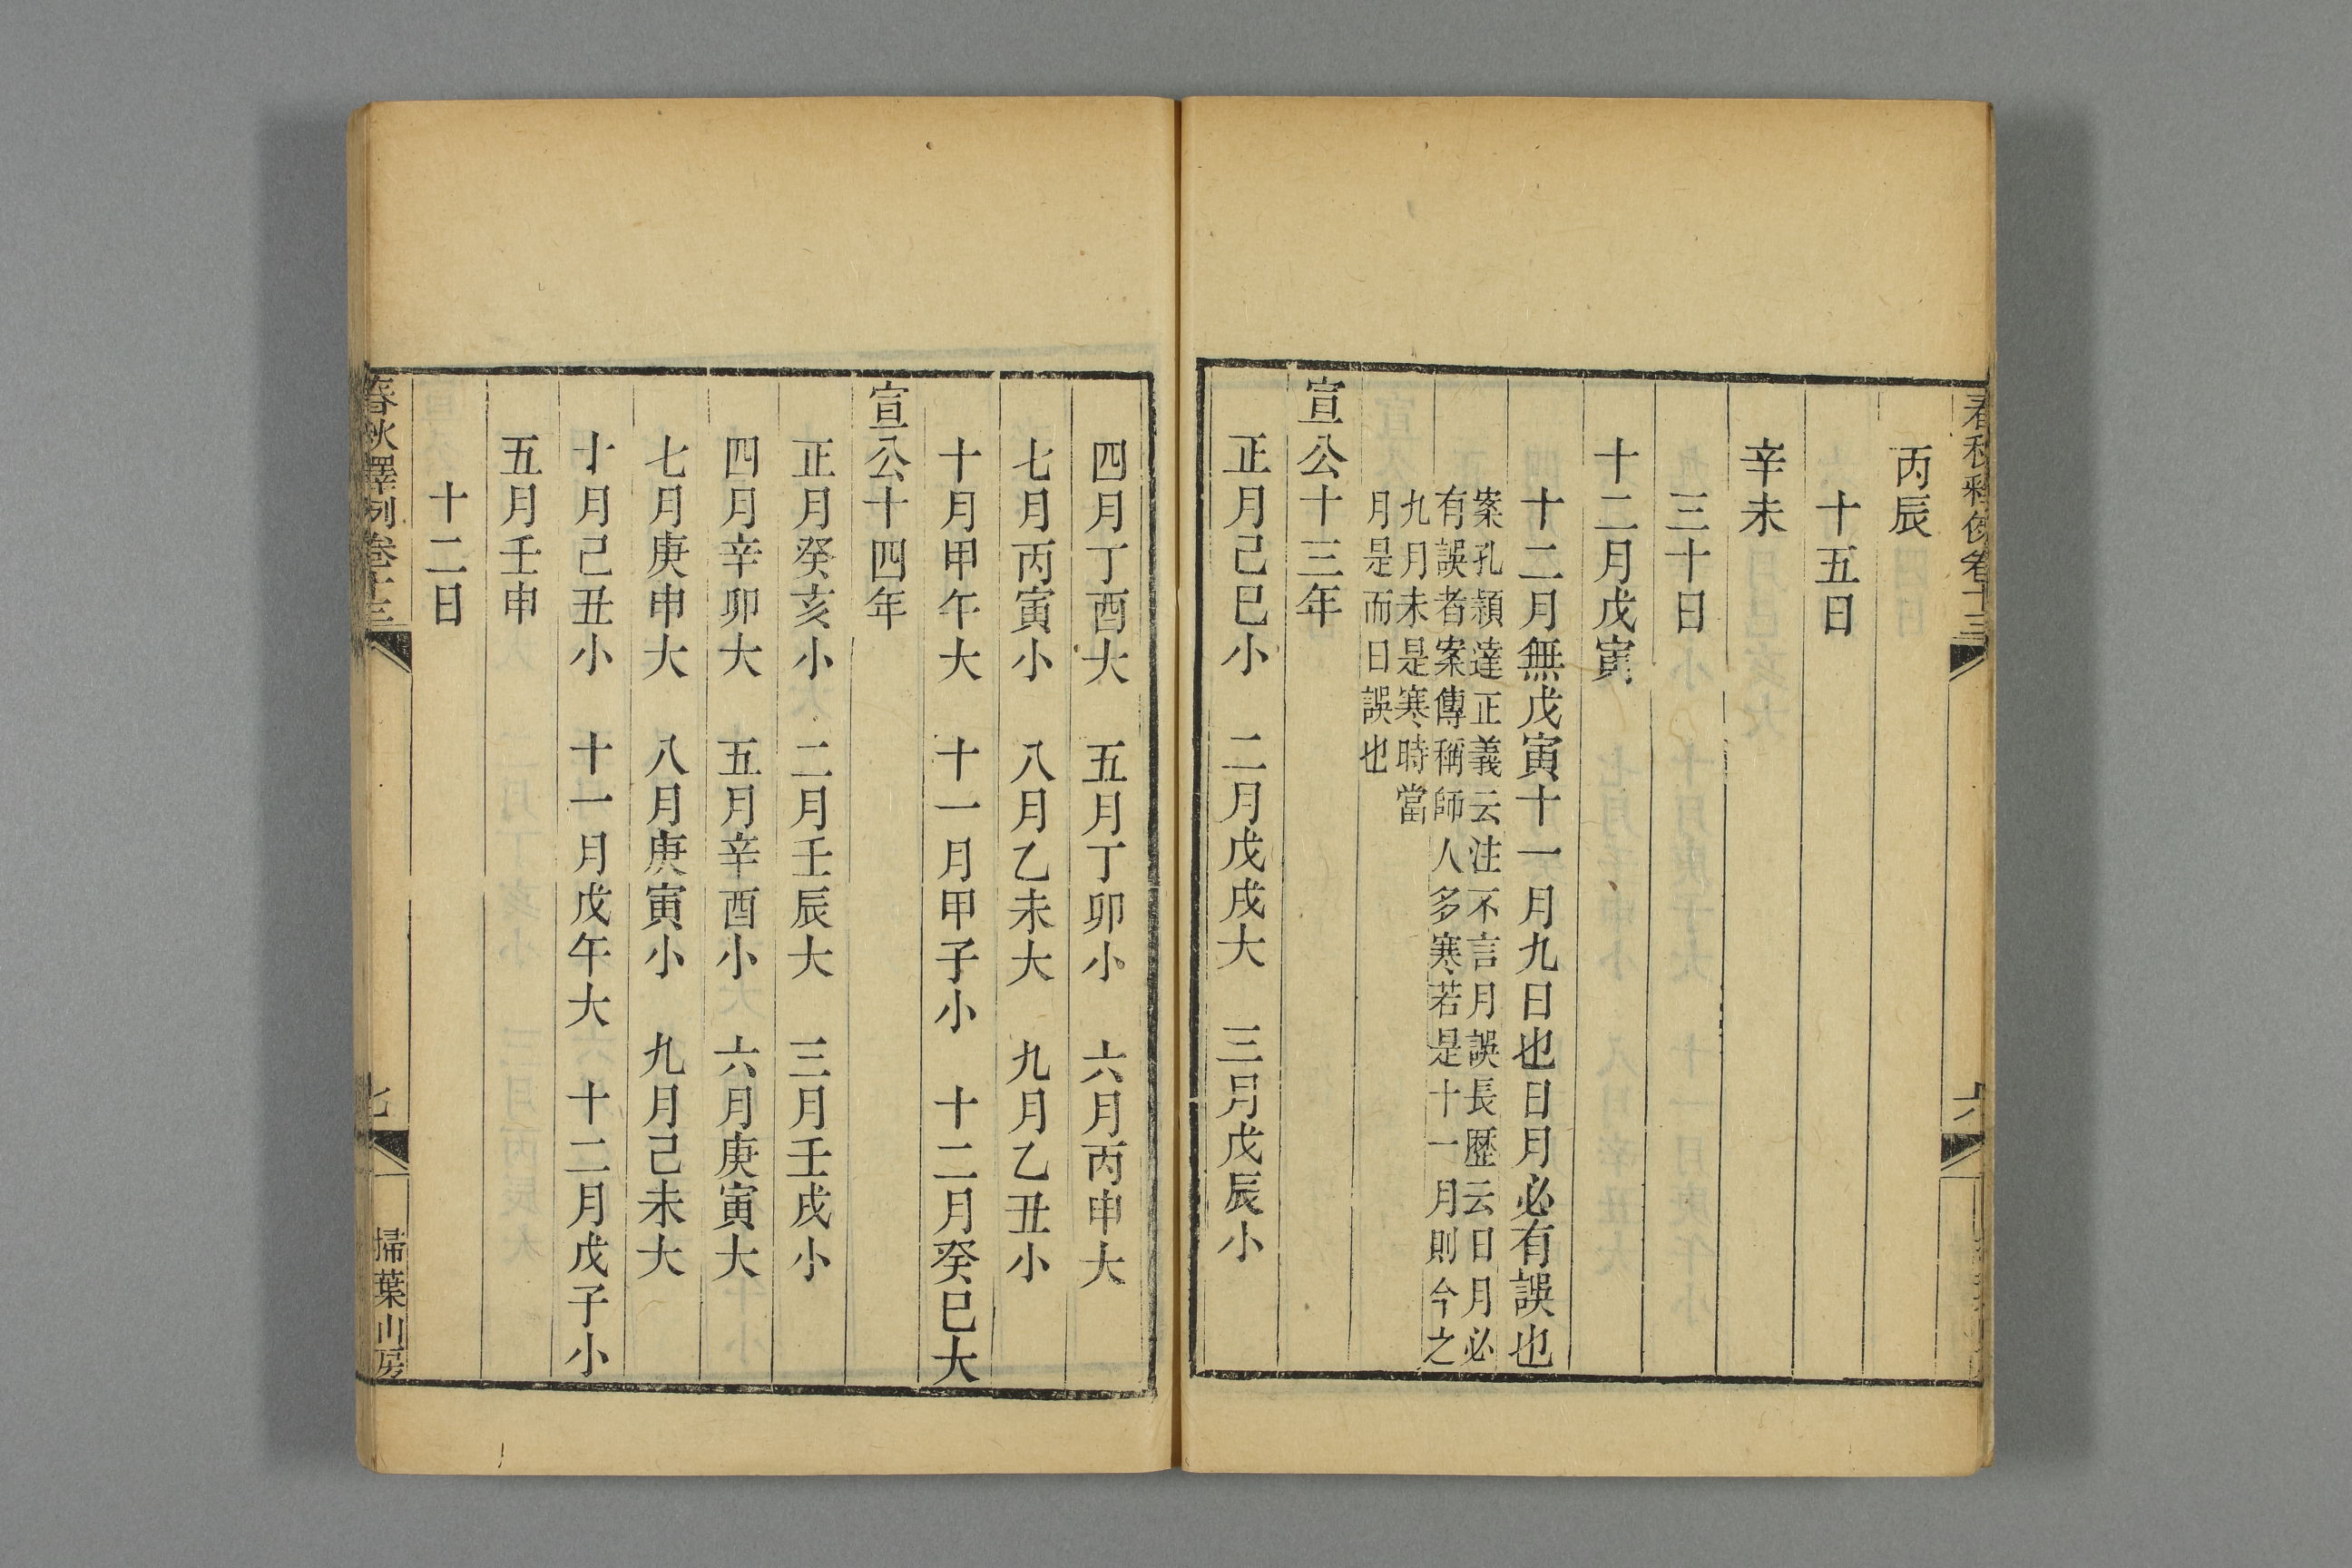 春秋釋例卷十三
六
丙辰
十五日
辛未
三十日
十二月戊寅
十二月無戊寅十一月九日也日月必有誤也
案孔穎達正義云注不言月誤長歷云日月必
有誤者案傳稱師人多寒若是十一月則今之
九月未是寒時當
月是而日誤也
宣公十三年
正月己巳小　二月戊戌大　三月戊辰小
四月丁酉大　五月丁卯小　六月丙申大
七月丙寅小　八月乙未大　九月乙丑小
十月甲午大　十一月甲子小　十二月癸巳大
宣公十四年
正月癸亥小　二月壬辰大　三月壬戌小
四月辛卯大　五月辛酉小　六月庚寅大
七月庚申大　八月庚寅小　九月己未大
十月己丑小　十一月戊午大　十二月戊子小
五月壬申
十二日
春秋釋例卷十三
七
掃葉山房